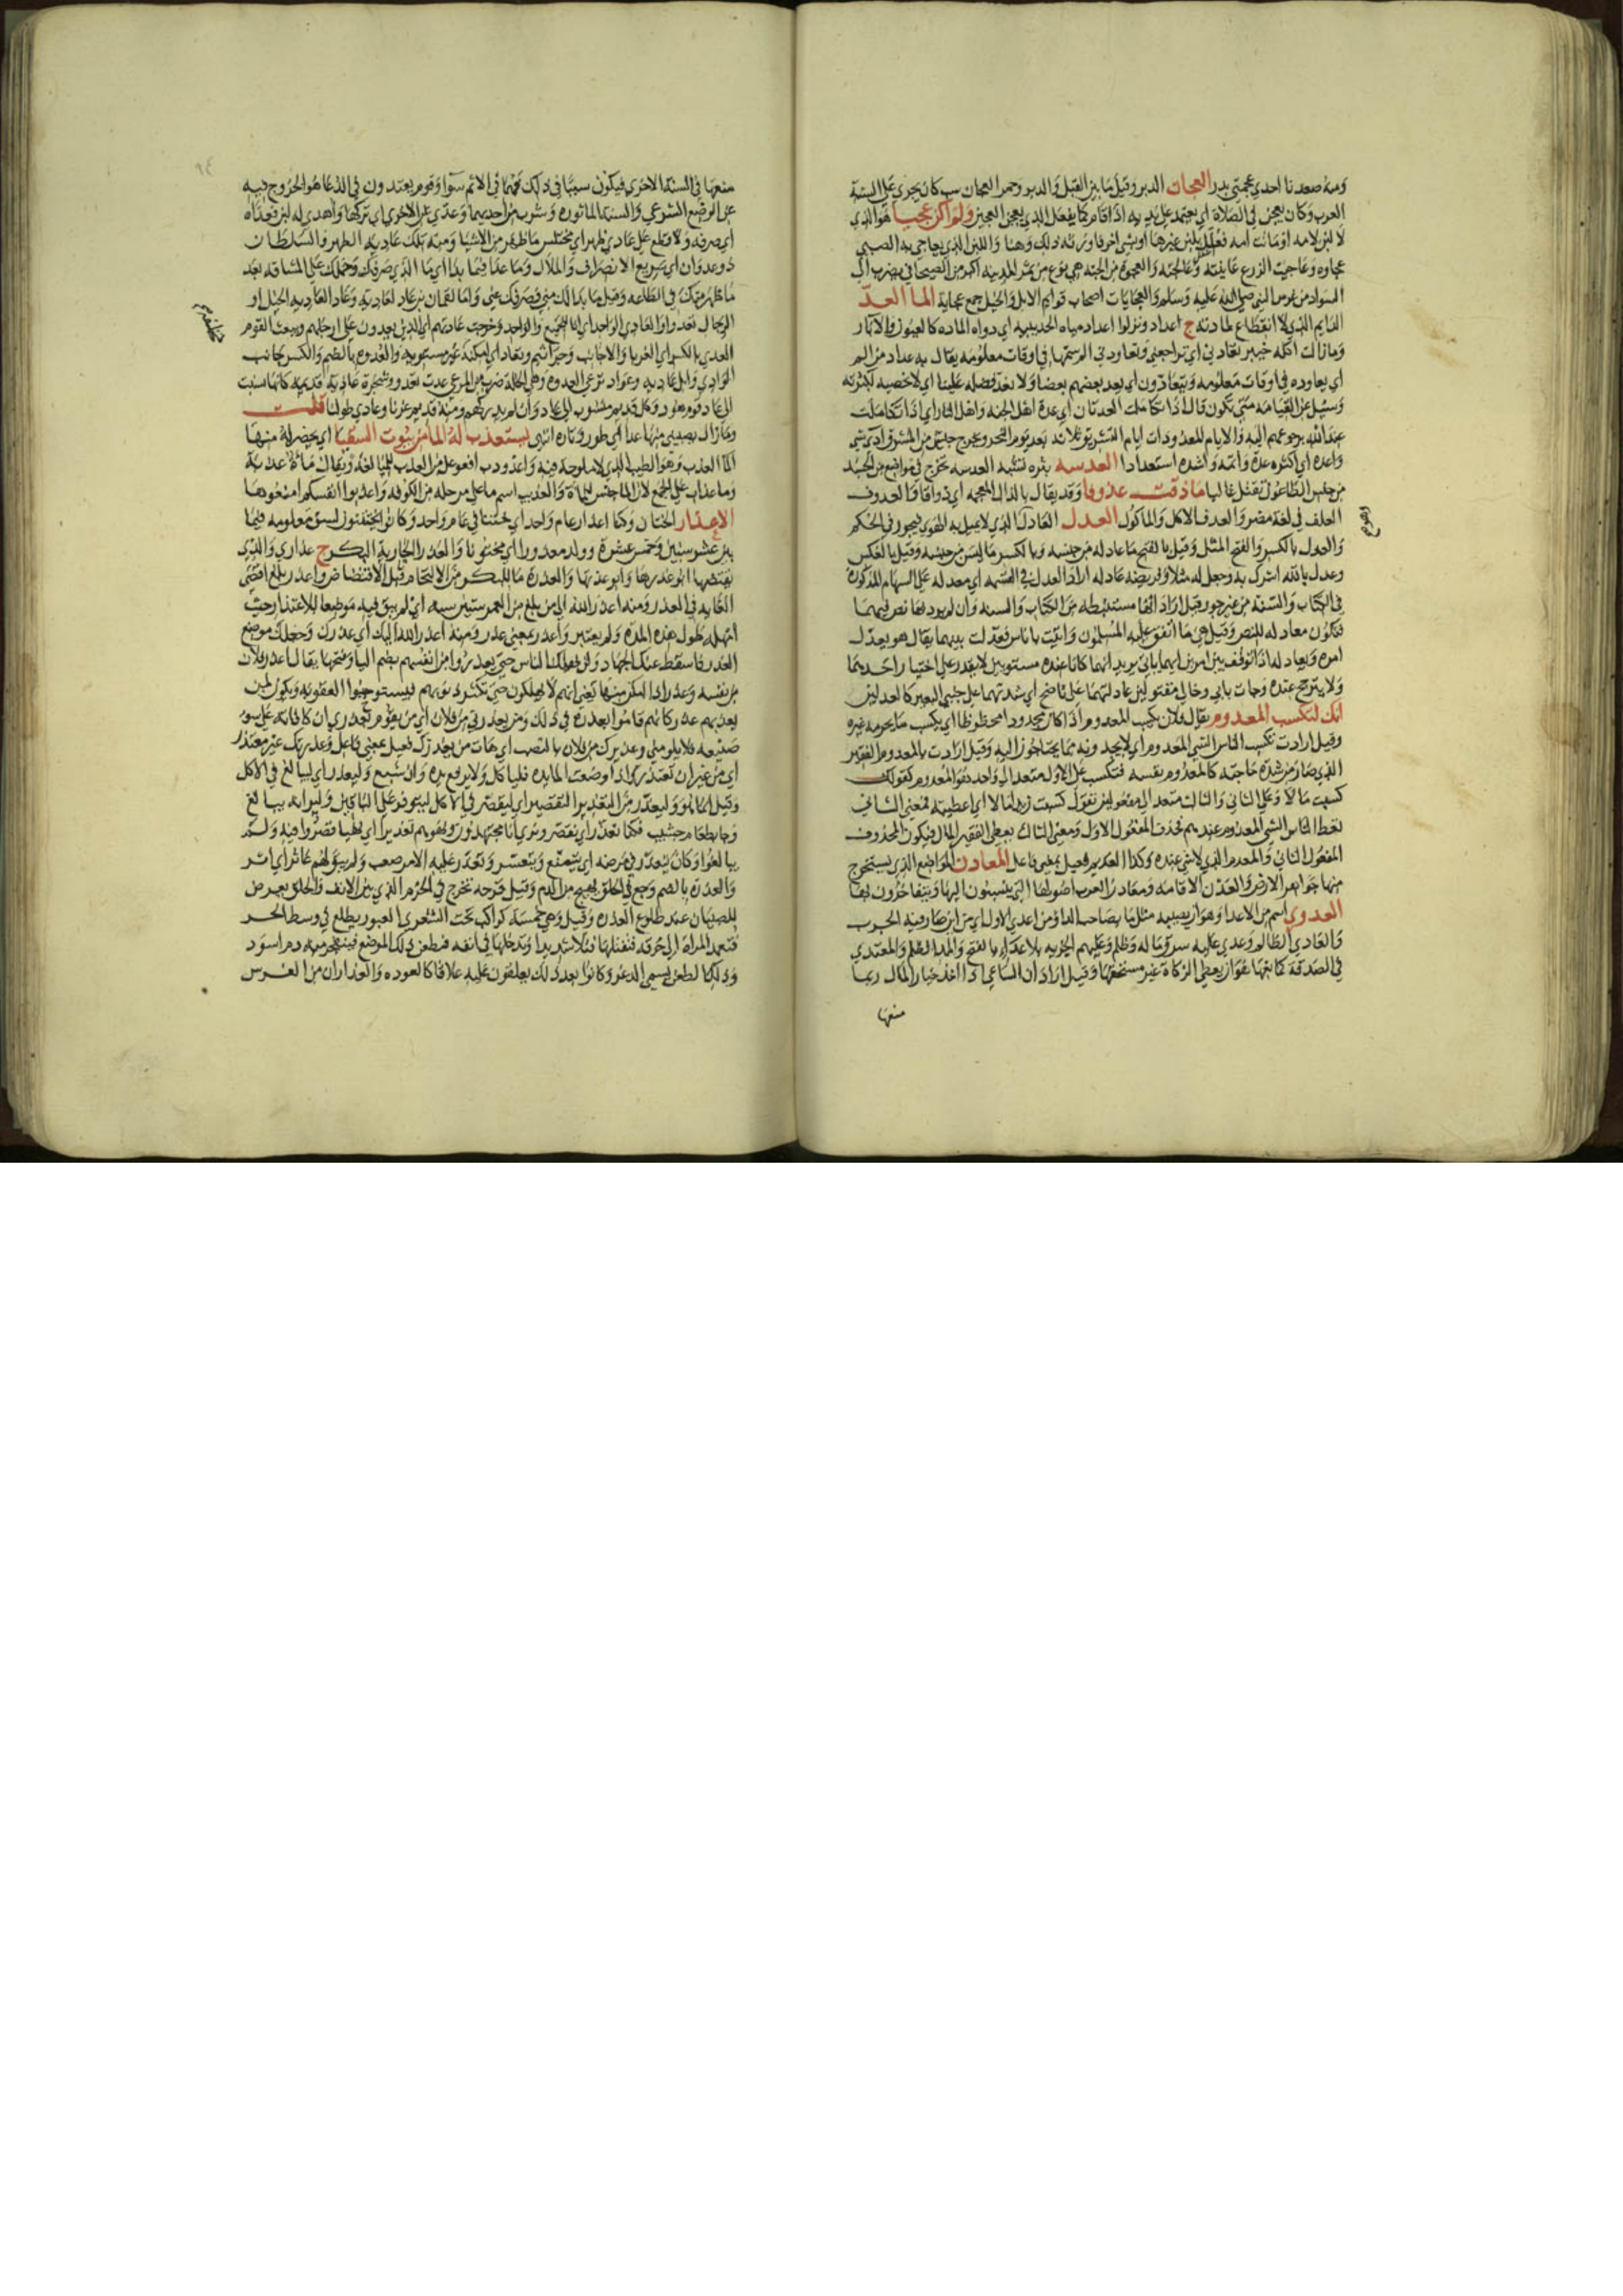 ومنه صعدنا احدي عجمتي بدر العجان الدبر وقيل ما بين القبل والدبر وحمرا العجان سب كان يجري على السنة
العرب وكان يعجن في الصلاة اي يعتمد على يديه اذا قام كما يفعل الذي يعجن العجين ولم اكن عجيا هو الذي
لا لبن لامه او ماتت امه فعلل بلبن غيرها او بشي اخر فاورثه ذلك وهنا واللبن الذي يعاجي به الصبي
عجاوه وعاجيت الزرع عافيته والعجوة من الجنة هي نوع من تمر المدينه اكبر من الصيحاني يضرب الى
السواد من غرس النبي صلى الله عليه وسلم والعجايات اصحاب قوايم الابل والخيل جمع عجاية الما العد
الدايم الذي لا انقطاع لمادته ج اعداد ونزلوا اعداد مياه الحديبيه اي دواه الماده كالعيون والابار
وما زالت اكله خيبر تعادني اي تراجعني وتعاودني الم سمها في اوقات معلومه يقال به عداد من الم
اي يعاوده في اوقات معلومه ويتعادون اي يعد بعضهم بعضا ولا نعد فضله علينا اي لا نحصيه لكثرته
وسئل عن القيامه متى تكون قال اذا تكاملت العدتان اي عدة اهل الجنه واهل النار اي اذا تكاملت
عند الله برجوعهم اليه والايام المعدودات ايام التشريق ثلاثه بعد يوم النحر ويخرج جيش من المشرق آدي شي
واعده اي اكثره عدة واتمه واشده استعدادا العدسه بثره تشبه العدسه تخرج في مواضع من الجسد
من جنس الطاعون تقتل غالبا ما ذقت عذوفا وقد يقال بالدال المعجمه اي ذواقا والعدوف
العلف في لغة مضر والعدف الاكل والماكول العدل العادل الذي لا يميل به الهوى فيجور في الحكم
والعدل بالكسر والفتح المثل وقيل بالفتح ما عادله من جنسه وبالكسر ما ليس من جنسه وقيل بالعكس
وعدل بالله اشرك به وجعل له مثلا وفريضه عادله اراد العدل في القسمه اي معدله على السهام المذكورة
في الكتاب والسنة من غير جور وقيل اراد انها مستنبطه من الكتاب والسنه وان لم يرد بها نص فيهما
فتكون معادله للنص وقيل هي ما اتفق عليه المسلمون واتيت باناس فعدلت بينهما يقال هو يعدل
امره ويعادله اذا توقف بين امرين ايهما ياتي يريد انهما كانا عنده مستويين لا يقدر على اختيار احدهما
ولا يترجح عنده وجات بابي وخالي مقتولين عادلتهما على ناضح اي شدتهما على جنبي البعير كالعدلين
انك لتكسب المعدوم يقال فلان يكسب المعدوم اذا كان مجدودا محظوظا اي يكسب ما يحرمه غيره
وقيل ارادت تكسب الناس الشي المعدوم اي لا يجدونه مما يحتاجون اليه وقيل ارادت بالمعدوم الفقير
الذي صار من شدة حاجته كالمعدوم بنفسه فتكسب على الاول متعد الى واحد هو المعدوم كقولك
كسبت مالا وعلى الثاني والثالث متعد الى مفعولين تقول كسبت زيدا مالا اي اعطيته فمعنى الثاني
تعطي الناس الشي المعدوم عندهم فحذف المفعول الاول ومعنى الثالث يعطي الفقير المال فيكون المحذوف
المفعول الثاني والمعدم الذي لا شي عنده وكذا العديم فعيل بمعنى فاعل المعادن المواضع الذي يستخرج
منها جواهر الارض والعدن الاقامه ومعادن العرب اصولها التي ينسبون اليها ويتفاخرون بها
العدوى اسم من الاعدا وهو ان يصيبه مثل ما بصاحب الداء ومن اعدي الاول اي من اين صار فيه الجرب
والعادي الظالم وعدي عليه سرق ماله وظلم وعليهم الجزيه بلا عداء بالفتح والمد الظلم والمعتدي
في الصدقة كمانعها هو ان يعطي الزكاة غير مستحقها وقيل اراد ان الساعي اذا اخذ خيار المال ربما
منعها
منعها في السنة الاخرى فيكون سببا في ذلك فهما في الاثم سوا وقوم يعتدون في الدعا هو الخروج فيه
عن الوضع الشرعي والسنة الماثورة وشرب من احديهما وعدى عن الاخرى اي تركها واهدي له لبن فعداه
اي صرفه ولا قطع على عادي ظهر اي مختلس ما ظهر من الاشيا ومنه تلك عادية الظهر والسلطان
ذو عدوان اي سريع الانصراف والملال وما عدا فيما بدا اي ما الذي صرفك وحملك على المشاقه بعد
ما ظهر منك في الطاعه وقيل ما بدا لك مني فصرفك عني وانا لقمان بن عاد لعاديه وعاد العاديه الخيل او
الرجال تعدوا والعادي الواحد اي انا للجمع والواحد وخرجت عاديتهم اي الذين يعدون على ارجلهم وبعث القوم
العدى بالكسر اي الغربا والاجانب
الوادي وابل عاديه وعواد ترعى العدوه وهي الخلة ضرب من المرعى عدت تعدو وشجرة عادية قديمه كانها نسبت
الى عاد قوم هود وكل قديم منسوب الى عاد وان لم يدركهم ومنه قديم عزنا وعادي طولنا قلت
وما زال يصيبني منها عدا اي طور وتاره انتهى يستعذب له الما من بيوت السقيا اي يحضر له منها
الما العذب وهو الطيب الذي لا ملوحة فيه واعذوذب افعوعل من العذب للمبالغه ويقال ماءة عذبة
وما عذاب على الجمع لان الما جنس للماءة والعذيب اسم ما على مرحله من الكوفه واعذبوا انفسكم امنعوها
الاعذار الختان وكنا اعذار عام واحد اي ختنا في عام واحد وكانوا يختتنون لسن معلومه فيما
بين عشر سنين وخمس عشرة وولد معذورا اي مختونا والعذرا الجارية البكر ج عذارى والذي
يفتضها ابو عذرها وابو عذرتها والعذرة ما للبكر من الالتحام قبل الافتضاض واعذر بلغ اقصى
الغايه في العذر ومنه اعذر الله الى من بلغ من العمر ستين سنه اي لم يبق فيه موضعا للاعتذار حيث
امهله طول هذه المدة ولم يعتبر واعذر بمعنى عذر ومنه اعذر الله اليك اي عذرك وجعلك موضع
العذر فاسقط عنك الجهاد ولن يهلك الناس حتى يعذروا من انفسهم بضم اليا وفتحها يقال اعذر فلان
من نفسه وعذر اذا امكن منها يعني انهم لا يهلكون حتى تكثر ذنوبهم فيستوجبوا العقوبه ويكون لمن
يعذبهم عذر كانهم قاموا بعذره في ذلك ومن يعذرني من فلان اي من يقوم بعذري ان كافاته على سوء
صنيعه فلا يلومني وعذيرك من فلان بالنصب اي هات من يعذرك فعيل بمعنى فاعل وعذيرك غير معتذر
اي من غير ان تعتذر واذا وضعت المايده فلياكل ولا يرفع يده وان شبع وليعذر اي ليبالغ في الاكل
وقيل انما هو وليعذر من التعذير التقصير اي ليقصر في الاكل ليتوفر على الباقين وليرانه يبالغ
وجا بطعام جشب فكنا نعذر اي نقصر ونري انا مجتهدون ونهوهم تعذيرا اي نهيا قصروا فيه ولم
يبالغوا وكان يتعذر في مرضه اي يتمنع ويتعسر وتعذر عليه الامر صعب ولم يبق لهم عاذر اي اثر
والعذرة بالضم وجع في الحلق يهيج من الدم وقيل قرحه تخرج في الخرم الذي بين الانف والحلق يعرض
للصبيان عند طلوع العذره وقيل وهي خمسة كواكب تحت الشعرى العبور يطلع في وسط الحر
فتعمد المراة الى خرقه فتفتلها فتلا شديدا وتدخلها في انفه فتطعن ذلك الموضع فينفجر منه دم اسود
وذلك الطعن يسمى الدغر وكانوا بعد ذلك يعلقون عليه علاقا كالعوده والعذاران من الفرس